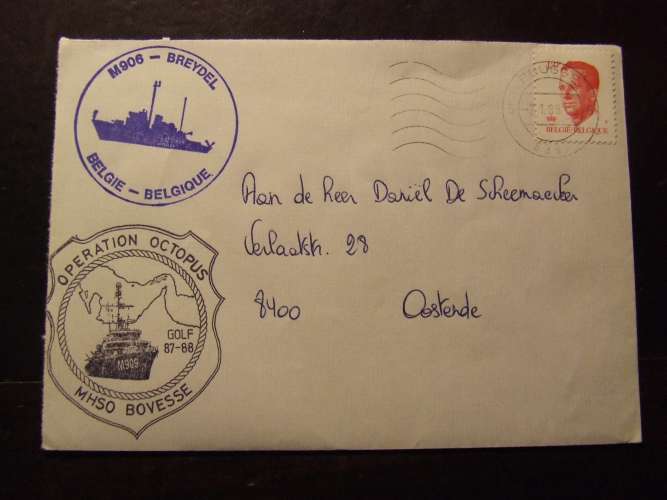 M906 - BREYDEL
BELGIE - BELGIQUE
BELGIË-BELGIQUE
Aan de heer Daniël De Scheemaecker
Verlaatstr. 28
8400 Oostende
OPERATION OCTOPUS
GOLF
87-88
M909
MHSO BOVESSE